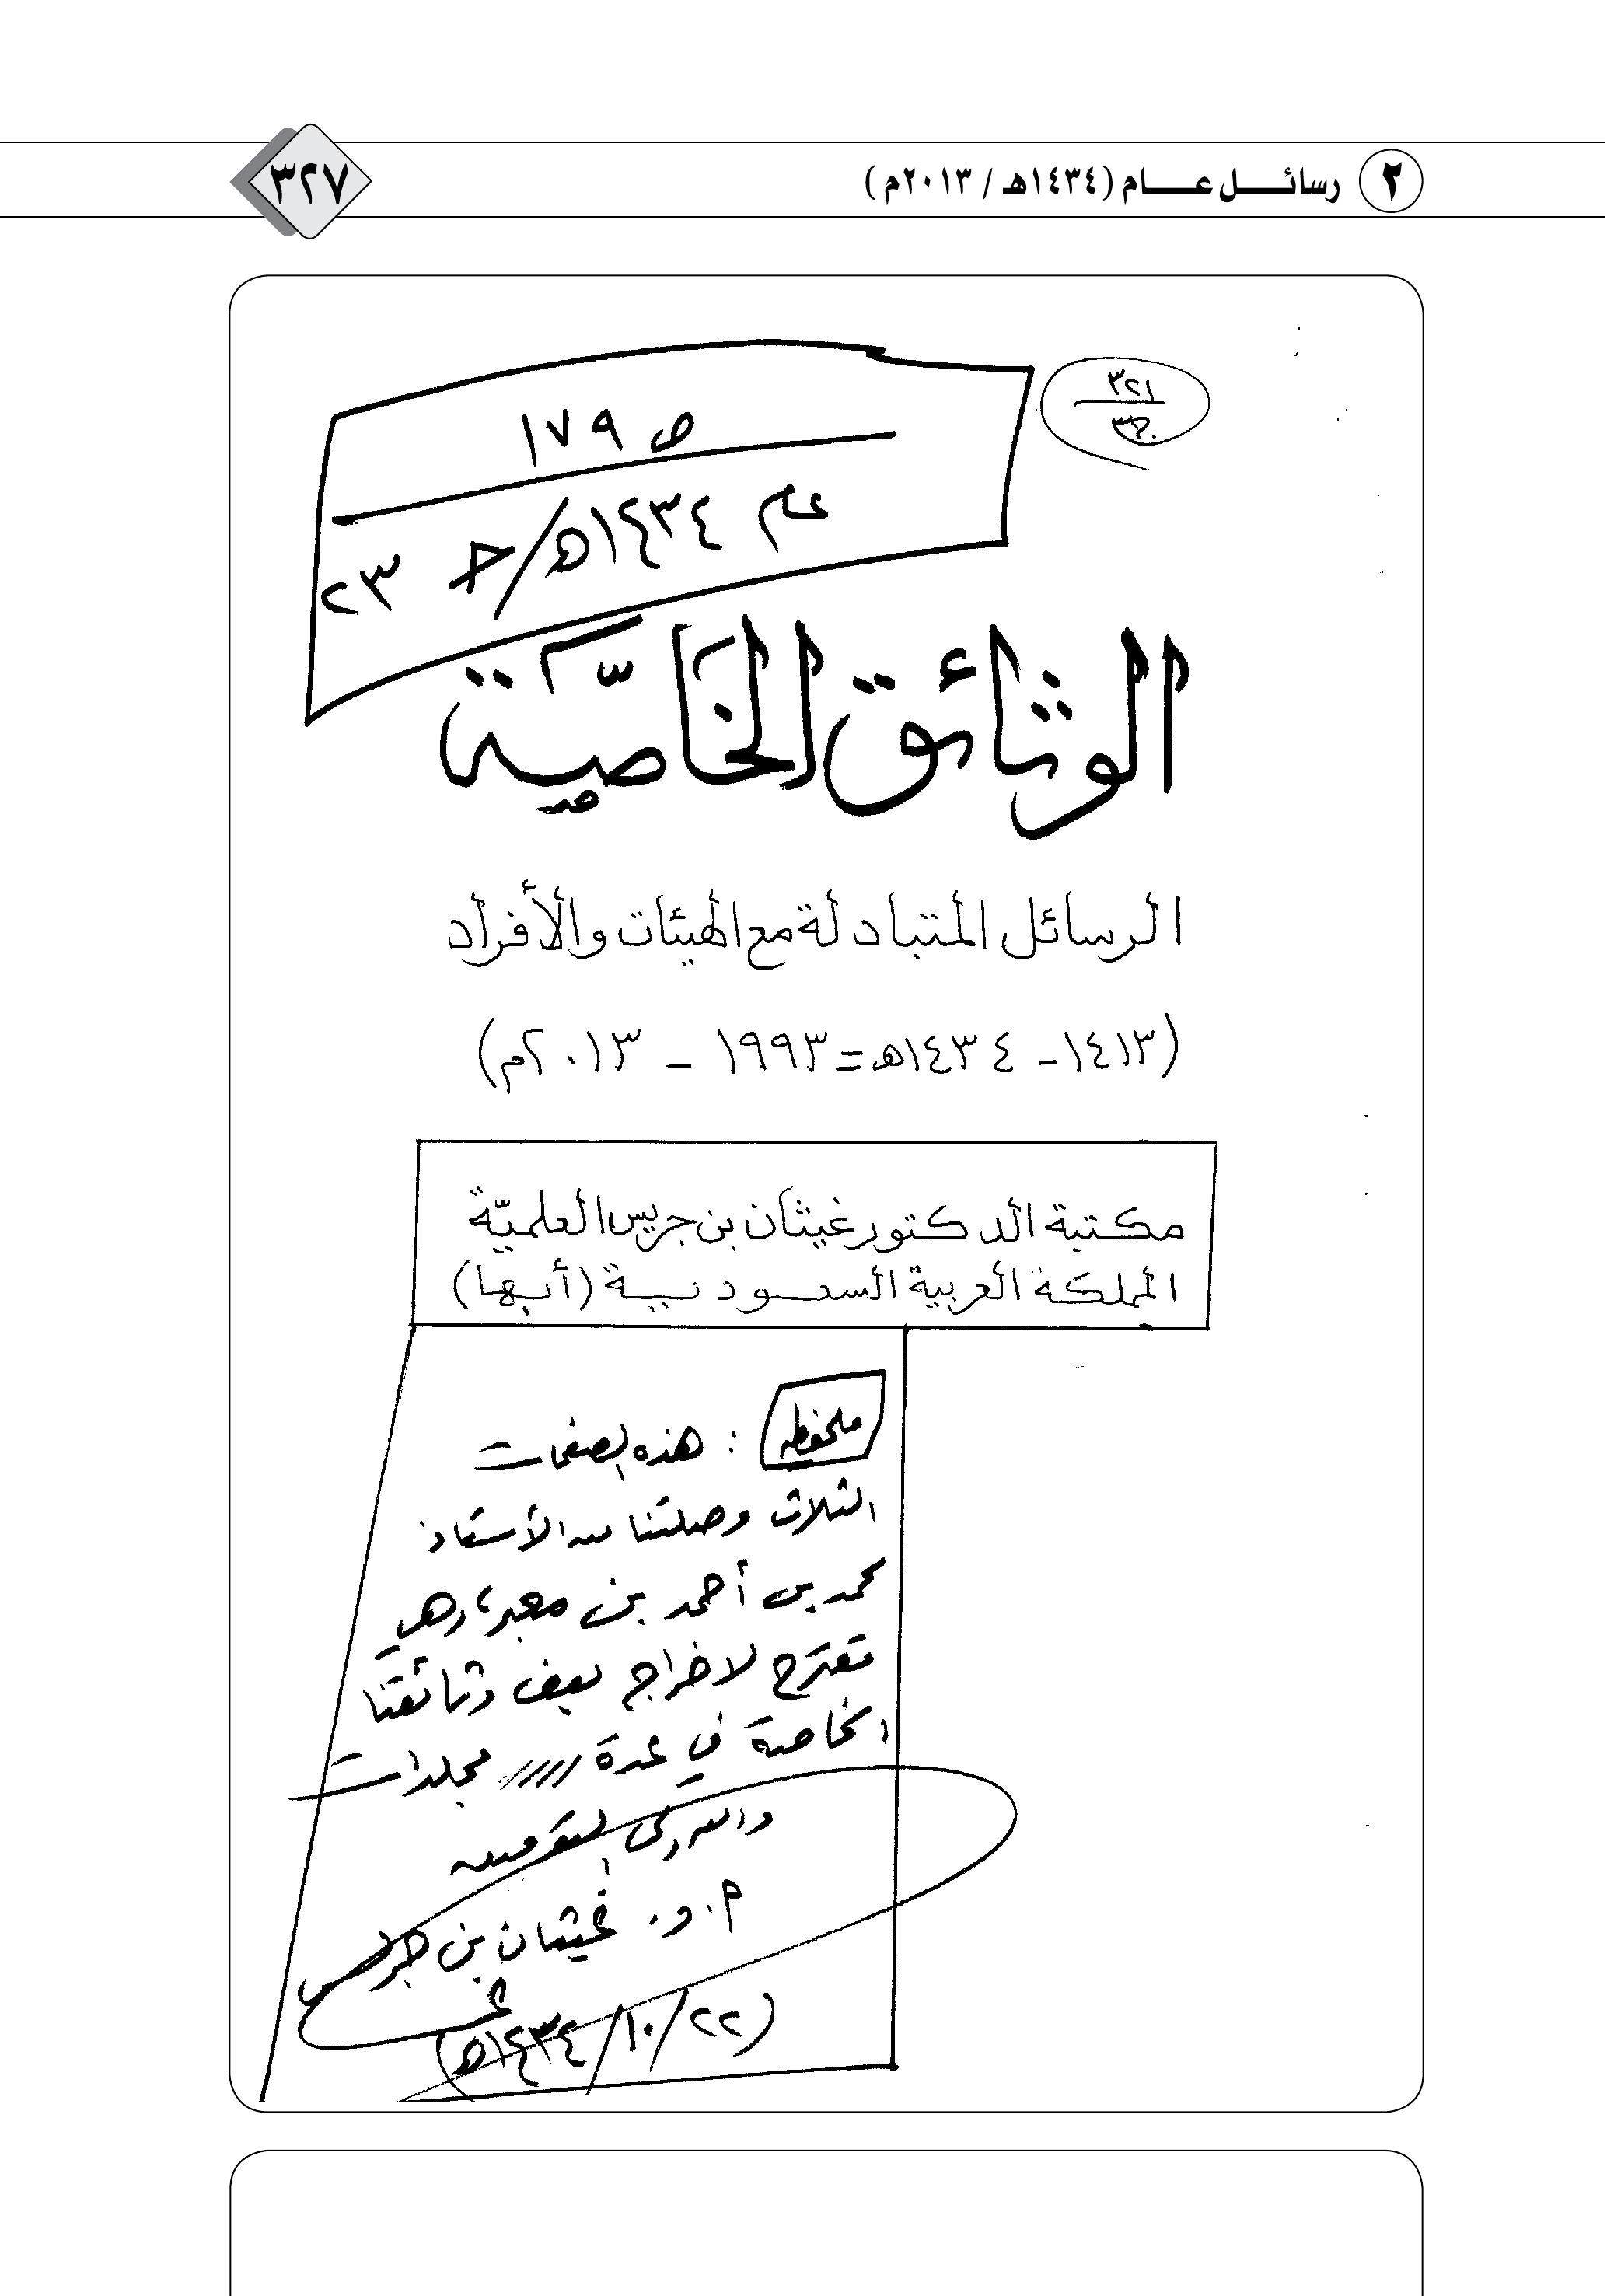 ٢ رسائل عام (١٤٣٤هـ / ٢٠١٣م)
٣٢٧
٣٢١
ص ١٧٩
عام ١٤٣٤هـ / ج ٢٣
الوثائق الخاصّية
الرسائل المتبادلة مع الهيئات والأفراد
(١٤١٣ - ١٤٣٤هـ = ١٩٩٣ - ٢٠١٣م)
مكتبة الدكتور غيثان بن جريس العلميّة
المملكة العربية السعودية (أبها)
ملحوظه : هذه الصفحات
الثلاث وصلتنا من الأستاذ
محمد بن أحمد بن معبر، وهي
مقترح لاخراج بعض وثائقنا
الخاصة في عدة مجلدات
والله ولي التوفيق
أ. د. غيثان بن جريس
(٢٢/١٠/١٤٣٤هـ)